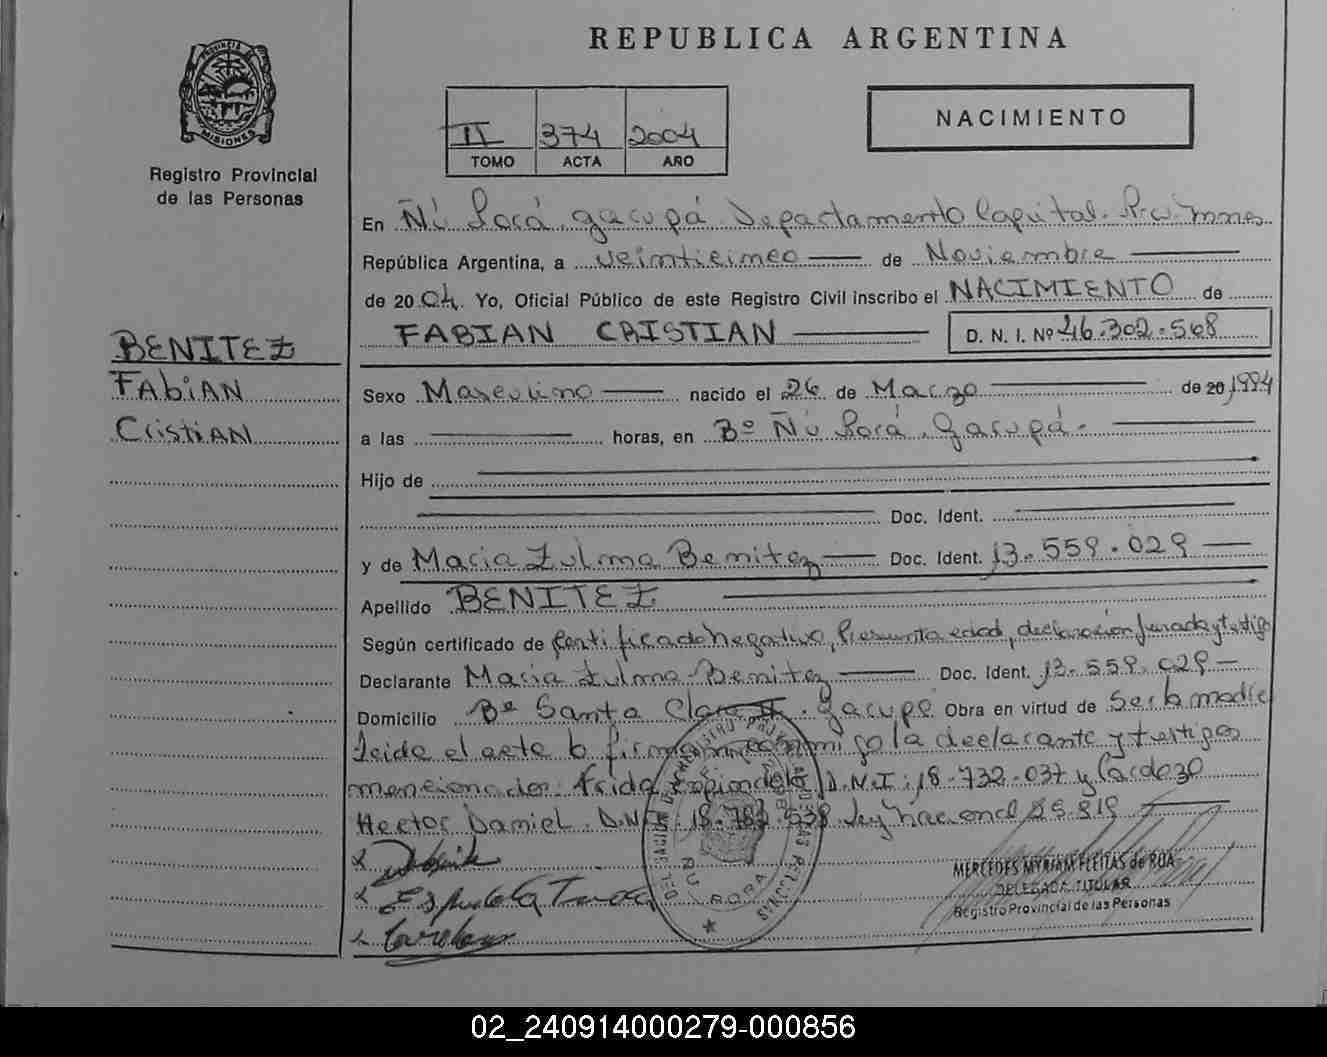 REPUBLICA ARGENTINA
PROVINCIA DE MISIONES
Registro Provincial
de las Personas
II 374 2004
TOMO ACTA AÑO
NACIMIENTO
En Ñú Porá, Garupá Departamento Capital. Pcia. Mnes.
República Argentina, a veinticinco de Noviembre
de 2004. Yo, Oficial Público de este Registro Civil inscribo el NACIMIENTO de
FABIAN CRISTIAN D. N. I. Nº 46.302.568
BENITEZ
FAbiAN
CristiAN
Sexo Masculino nacido el 26 de Marzo de 20 1994
a las horas, en Bº Ñú Porá, Garupá.
Hijo de
Doc. Ident.
y de Maria Zulma Benitez Doc. Ident. 13.559.029
Apellido BENITEZ
Según certificado de Certificado Negativo, Presunta edad, declaración Jurada y testigo
Declarante Maria Zulma Benitez Doc. Ident. 13.559.029
Domicilio Bº Santa Clara II. Garupá Obra en virtud de Ser la madre
Leida el acta la firman conmigo la declarante y testigos
mencionados: Frida Espindola D.N.I: 18.732.037 y Cardozo
Hector Daniel. D.N.I: 18.782.538 Ley nacional 25.819
MERCEDES MYRIAM FLEITAS de ROA
DELEGADA TITULAR
Registro Provincial de las Personas
02_240914000279-000856